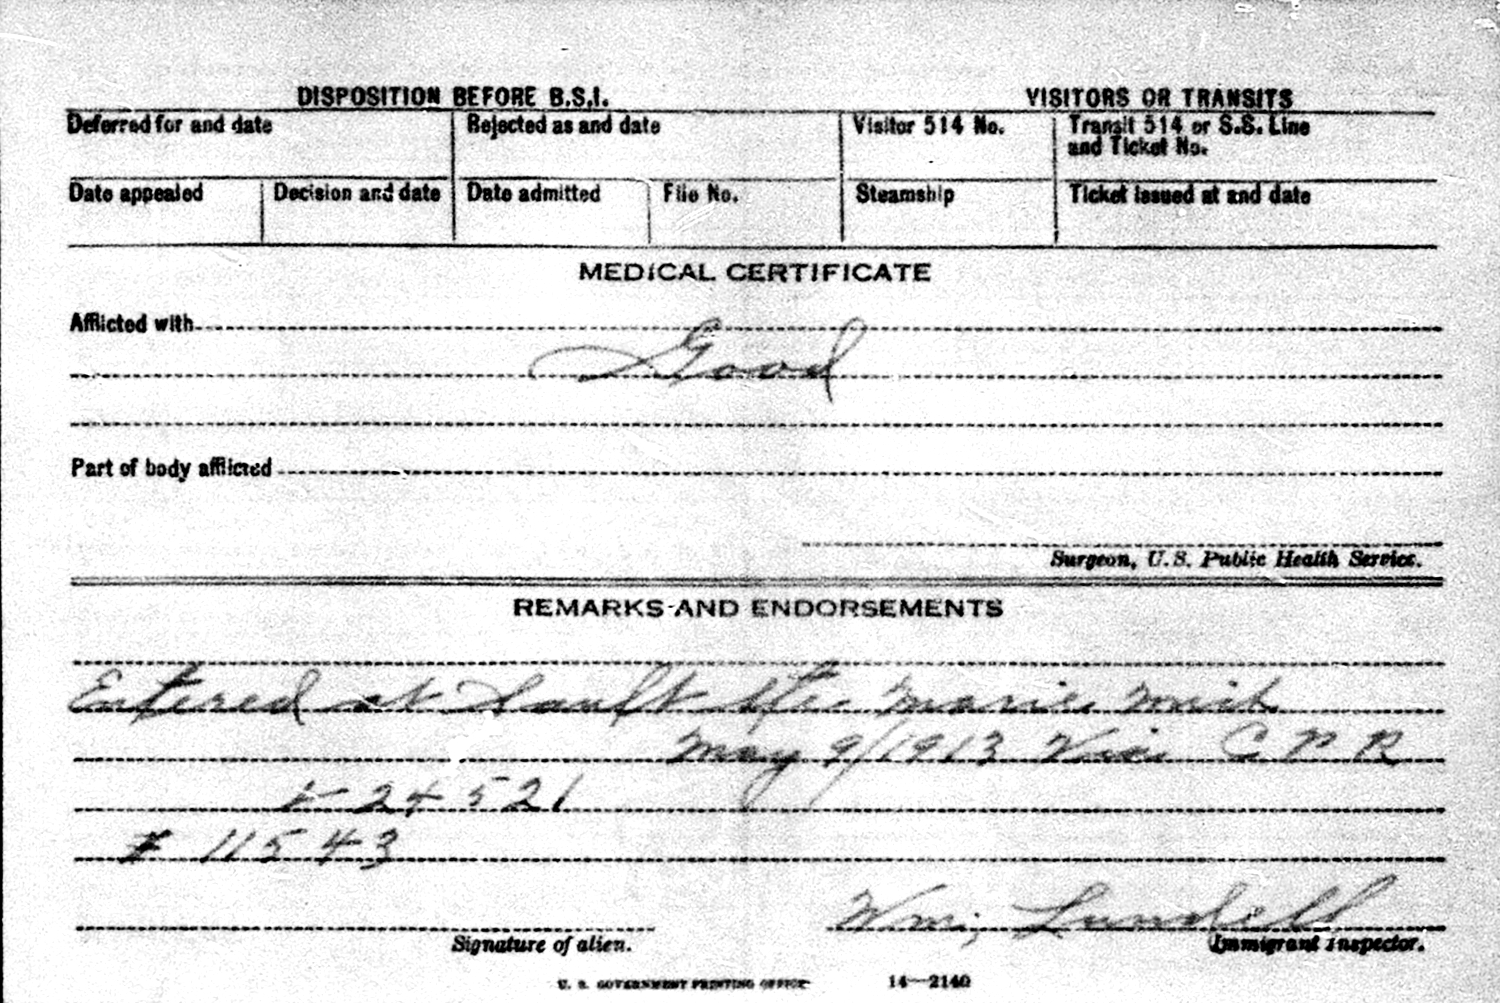 DISPOSITION BEFORE B.S.I. VISITORS OR TRANSITS
Deferred for and date Rejected as and date Visitor 514 No. Transit 514 or S.S. Line
and Ticket No.
Date appealed Decision and date Date admitted File No. Steamship Ticket issued at and date
MEDICAL CERTIFICATE
Afflicted with
Good
Part of body afflicted
Surgeon, U.S. Public Health Service.
REMARKS AND ENDORSEMENTS
Entered at Sault Ste. Marie Mich
May 9/1913 Via C P R
24521
# 11543
Wm. Lundell
Signature of alien. Immigrant Inspector.
U. S. GOVERNMENT PRINTING OFFICE 14—2140